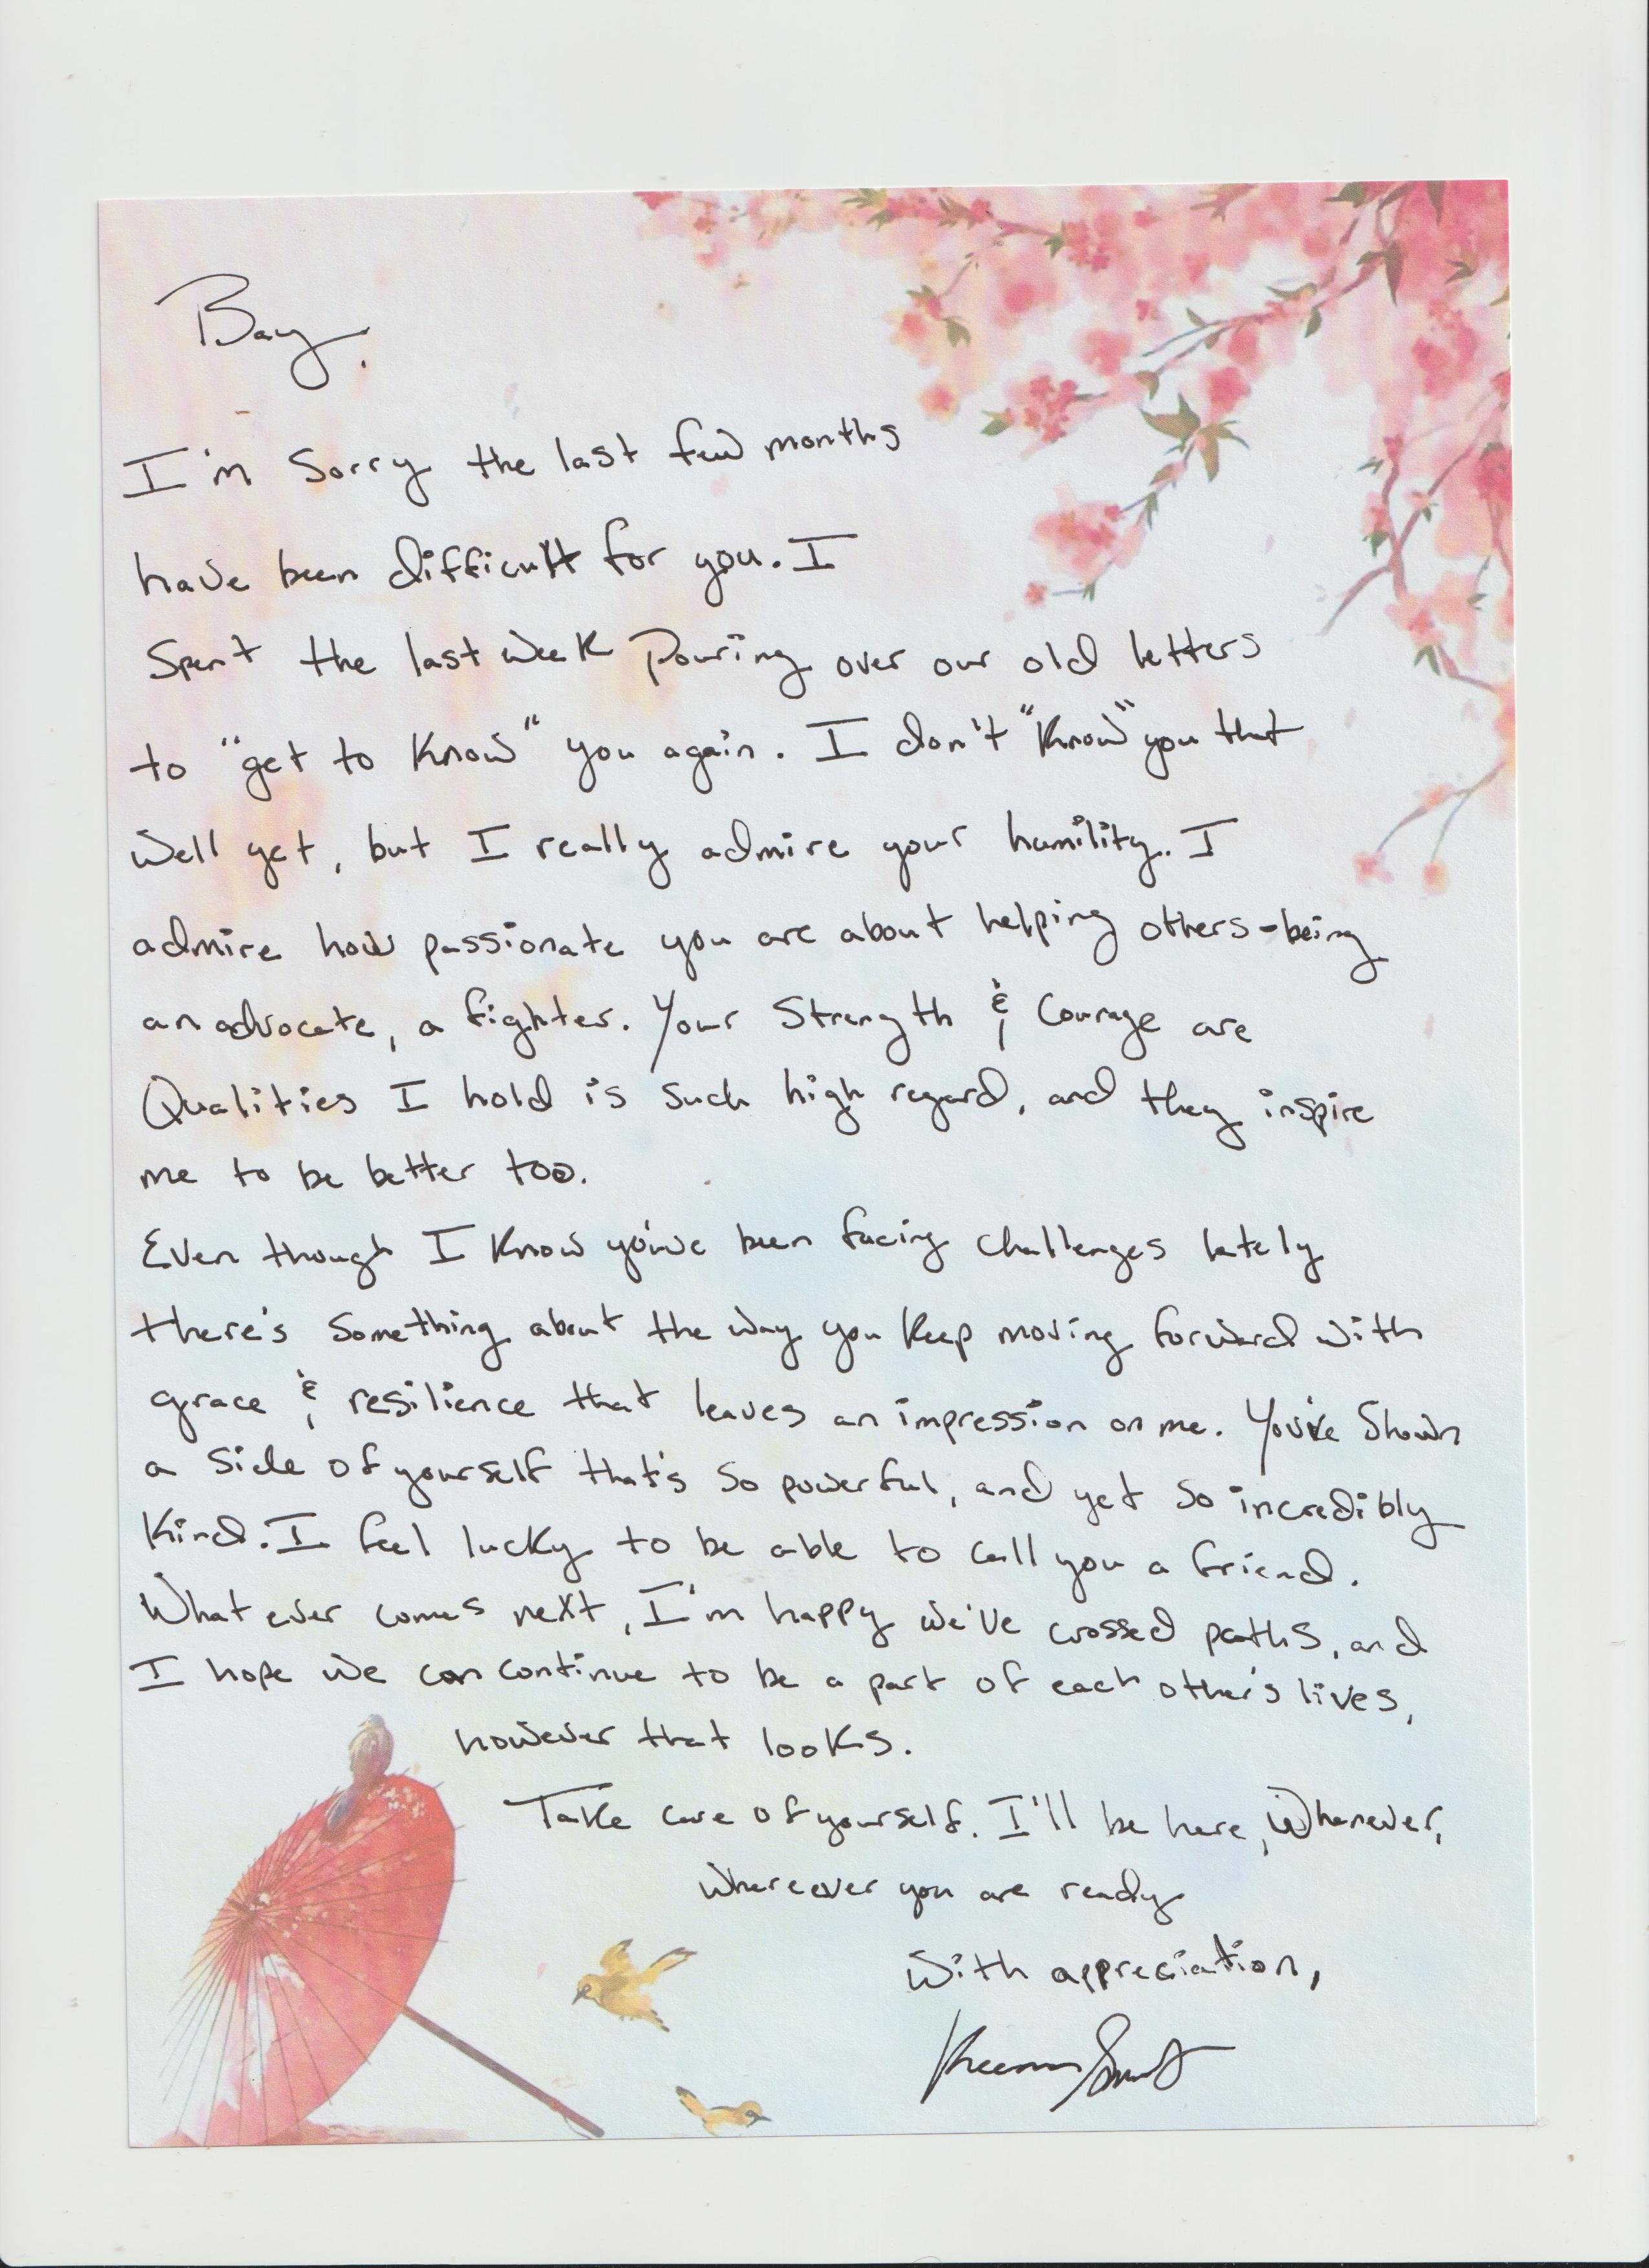 Bay,
I'm Sorry the last few months
have been difficult for you. I
Spent the last week Pouring over our old letters
to "get to know" you again. I don't "know" you that
Well yet, but I really admire your humility. I
admire how passionate you are about helping others-being
an advocate, a fighter. Your Strength & Courage are
Qualities I hold is such high regard, and they inspire
me to be better too.
Even though I know you've been facing challenges lately
there's something about the way you keep moving forward with
grace & resilience that leaves an impression on me. You've Shown
a side of yourself that's so powerful, and yet so incredibly
Kind. I feel lucky to be able to call you a friend.
What ever comes next, I'm happy we've crossed paths, and
I hope we can continue to be a part of each other's lives,
however that looks.
Take care of yourself. I'll be here, Whenever,
whereever you are ready
With appreciation,